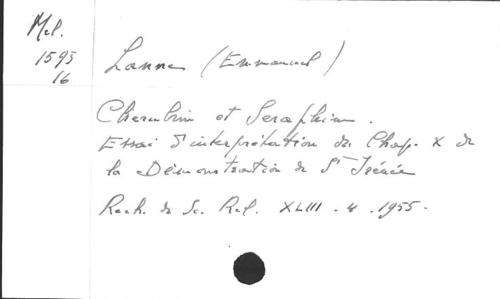 Mel.
1593
16
Lanne (Emmanuel)
Cherubim et Seraphim.
Essai d'interprétation du Chap. X de
la Démonstration de St Irénée
Rech. de Sc. Rel. XLIII. 4. 1955.